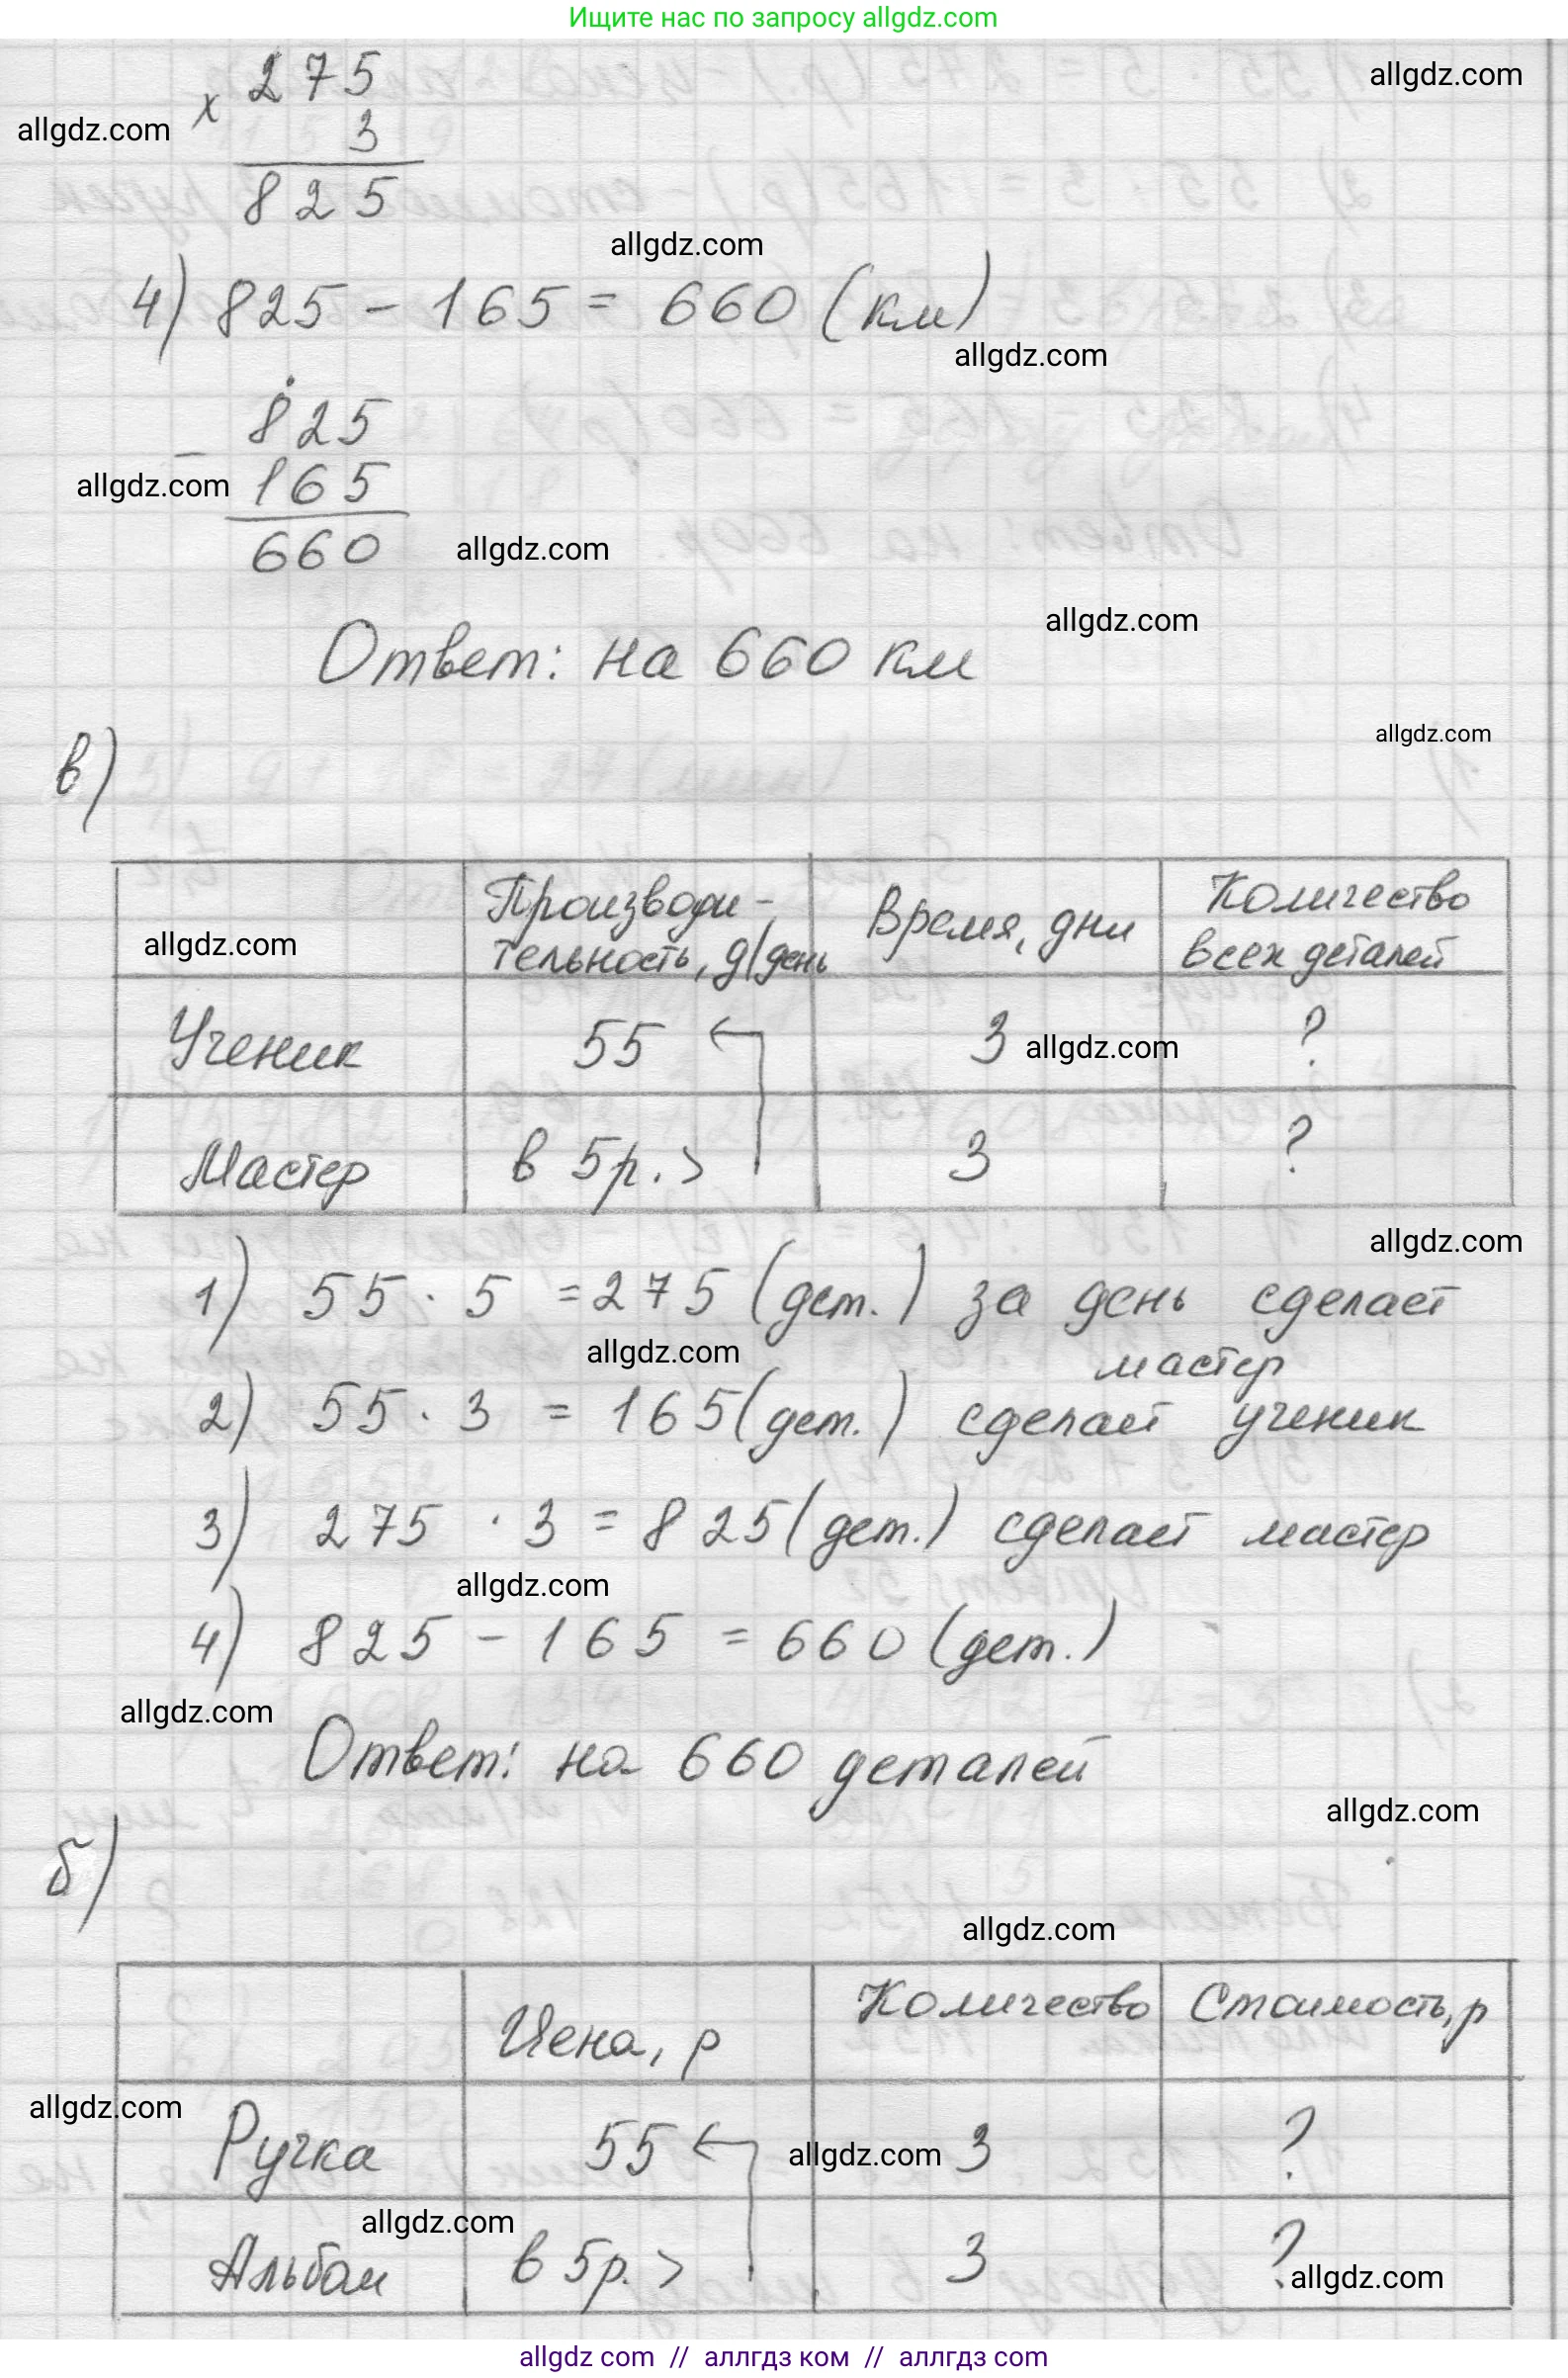 Ищите нас по запросу allgdz.com
allgdz.com
× 275
allgdz.com
3
825
allgdz.com
4) 825 - 165 = 660 (км)
allgdz.com
- 825
allgdz.com 165
660 allgdz.com
allgdz.com
Ответ: на 660 км
allgdz.com
в)
Производи- Время, дни Количество
allgdz.com тельность, д/день всех деталей
Ученик 55 3 allgdz.com ?
Мастер в 5 р. > 3 ?
allgdz.com
1) 55 · 5 = 275 (дет.) за день сделает
allgdz.com мастер
2) 55 · 3 = 165 (дет.) сделает ученик
3) 275 · 3 = 825 (дет.) сделает мастер
allgdz.com
4) 825 - 165 = 660 (дет.)
allgdz.com
Ответ: на 660 деталей
allgdz.com
б)
allgdz.com
Цена, р Количество Стоимость, р
allgdz.com
Ручка 55 allgdz.com 3 ?
allgdz.com
Альбом в 5 р. > 3 ?
allgdz.com
allgdz com // аллгдз ком // аллгдз com